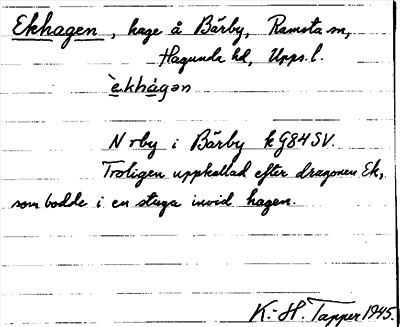 Ekhagen, hage å Bärby, Ramsta sn,
Hagunda hd, Upps. l.
`ekhàgən
N. by i Bärby k G84 SV.
Troligen uppkallad efter dragonen Ek,
som bodde i en stuga invid hagen.
K.-H. Tapper 1945.